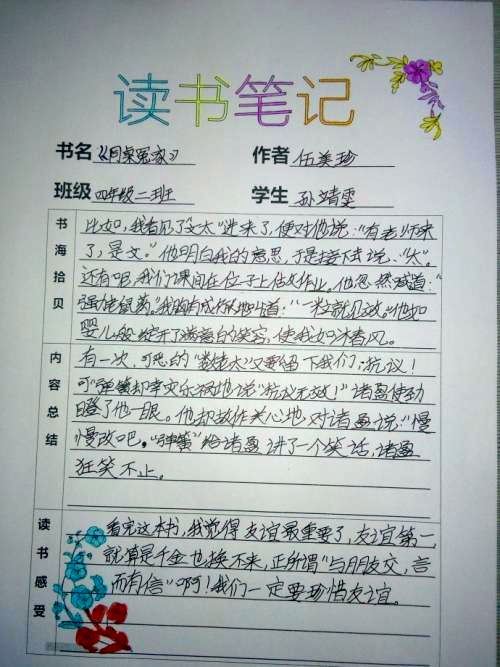 读书笔记
书名 《同桌冤家》 作者 伍美珍
班级 四年级二班 学生 孙靖雯
书海拾贝
比如,我看见了"文太"进来了,便对他说:"有老师来
了,是文。"他明白我的意思,于是接下去说:"太"。
还有呢,我们课间在位子上做作业。他忽然喊道:"
婴儿般绽开了满意的笑容,使我如沐春风。
内容总结
有一次,可恶的"数老太"又要留下我们;抗议!
可"弹簧却幸灾乐祸地说"抗议无效!"诸盈使劲
瞪了他一眼。他却故作关心地,对诸盈说:"慢
慢改吧。"弹簧"给诸盈讲了一个笑话,诸盈
狂笑不止。
读书感受
看完这本书,我觉得友谊最重要了,友谊第一,
就算是千金也换不来,正所谓"与朋友交,言
而有信"啊!我们一定要珍惜友谊。